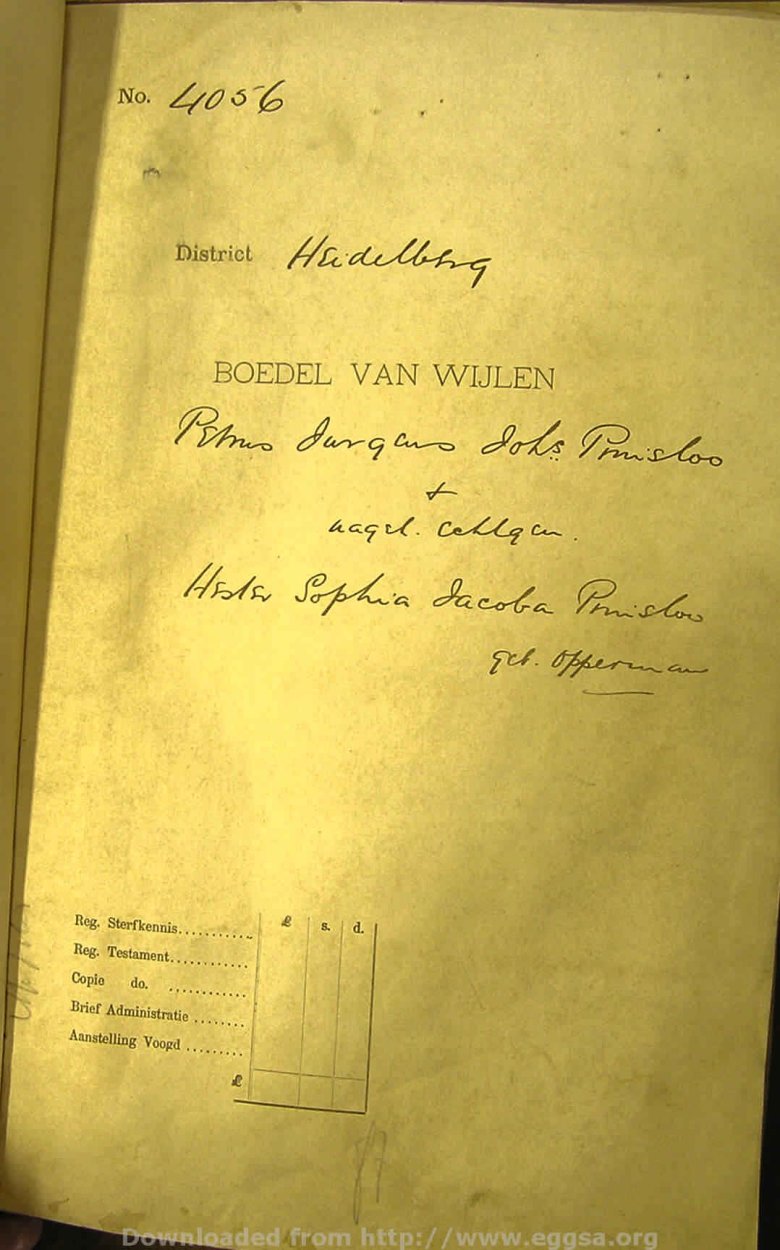 No. 4056
District Heidelberg
BOEDEL VAN WIJLEN
Petrus Jurgens Johs. Prinsloo
+
nagel. echtgen.
Hester Sophia Jacoba Prinsloo
geb. Opperman
£ s. d.
Reg. Sterfkennis...........
Reg. Testament............
Copie do. ............
Brief Administratie ........
Aanstelling Voogd .........
£
Downloaded from http://www.eggsa.org